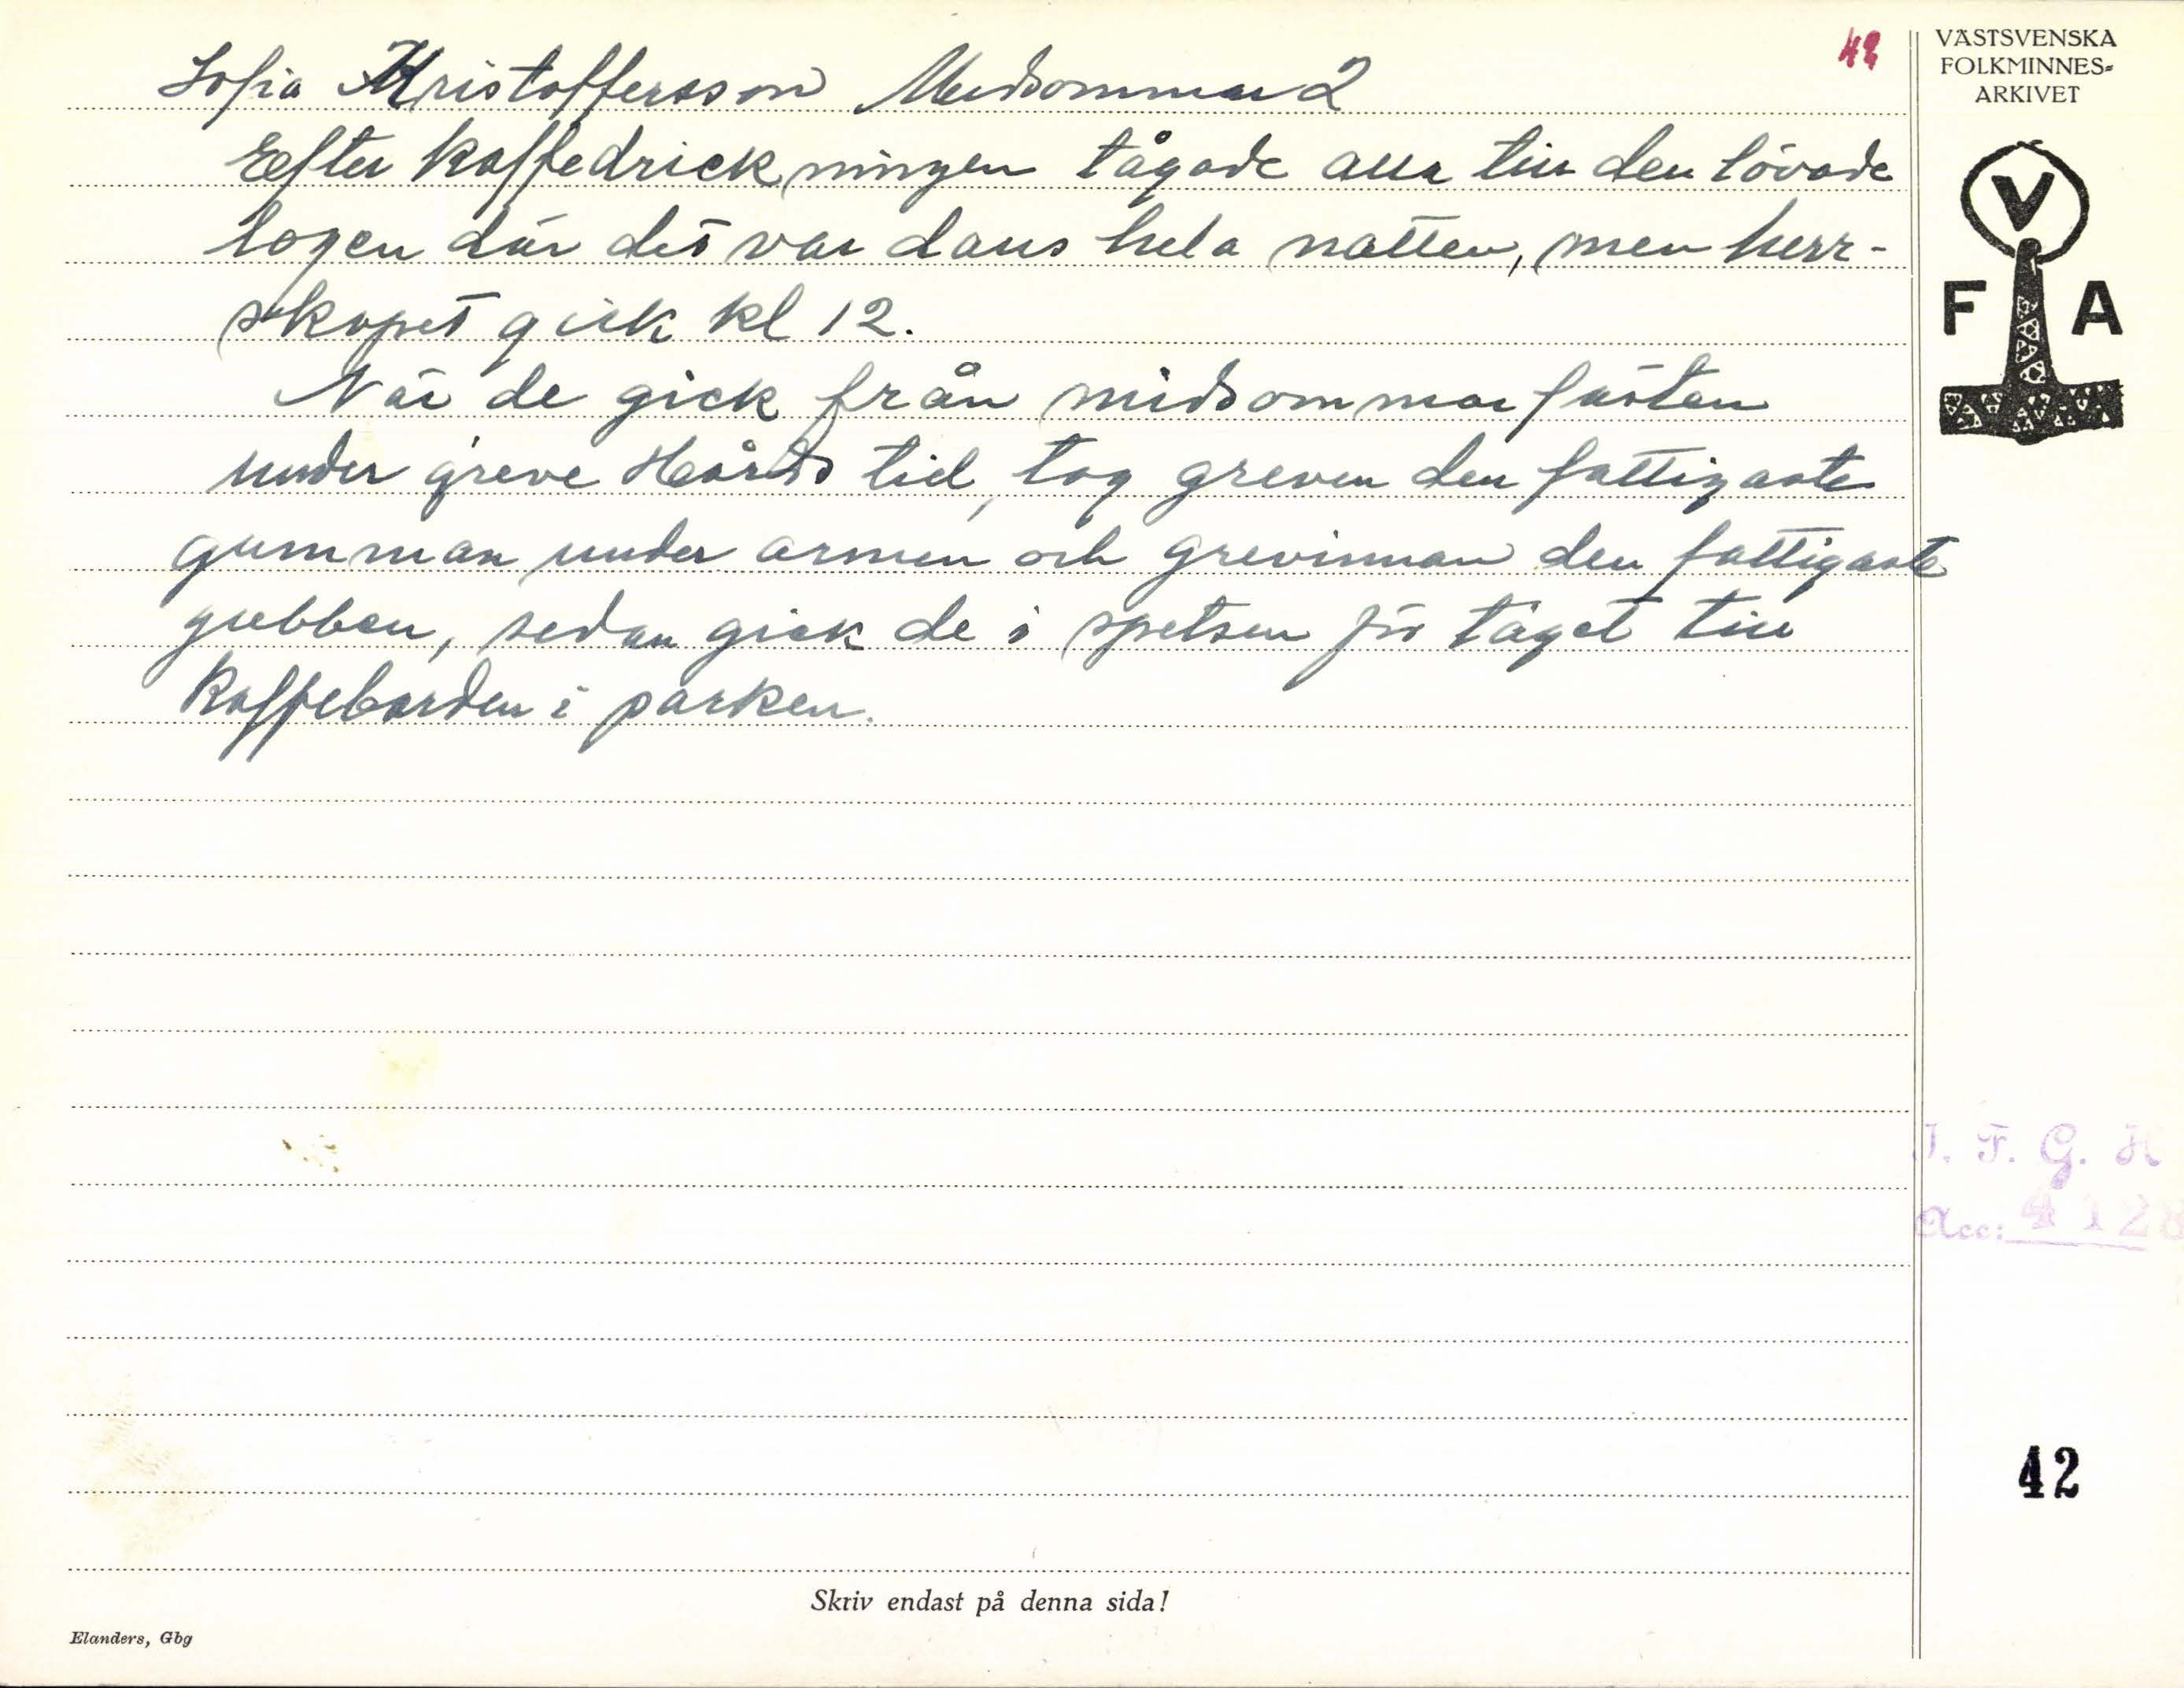 42
VÄSTSVENSKA
FOLKMINNES-
ARKIVET
V
F A
Sofia Kristoffersson Midsommar 2
Efter kaffedrickningen tågade alla till den lövade
logen där det var dans hela natten, men herr-
skapet gick kl 12.
När de gick från midsommarfästen
under greve Hårds tid, tog greven den fattigaste
gumman under armen och grevinnan den fattigaste
gubben, sedan gick de i spetsen för tåget till
Kaffeborden i parken.
I. F. G. H
Acc: 4128
42
Skriv endast på denna sida!
Elanders, Gbg